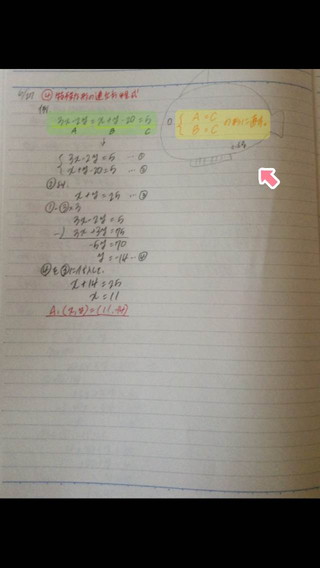 ④ 特殊な形の連立方程式
例
3x-2y=x+y-20=5
A B C
{ A=C
{ B=C の形に
↓
{ 3x-2y=5 …①
{ x+y-20=5 …②
②より、
x+y=25 …③
①-③×3
3x-2y=5
-) 3x+3y=75
-5y=70
y=-14 …④
④を③に代入して、
x+14=25
x=11
A. (x,y)=(11,-14)